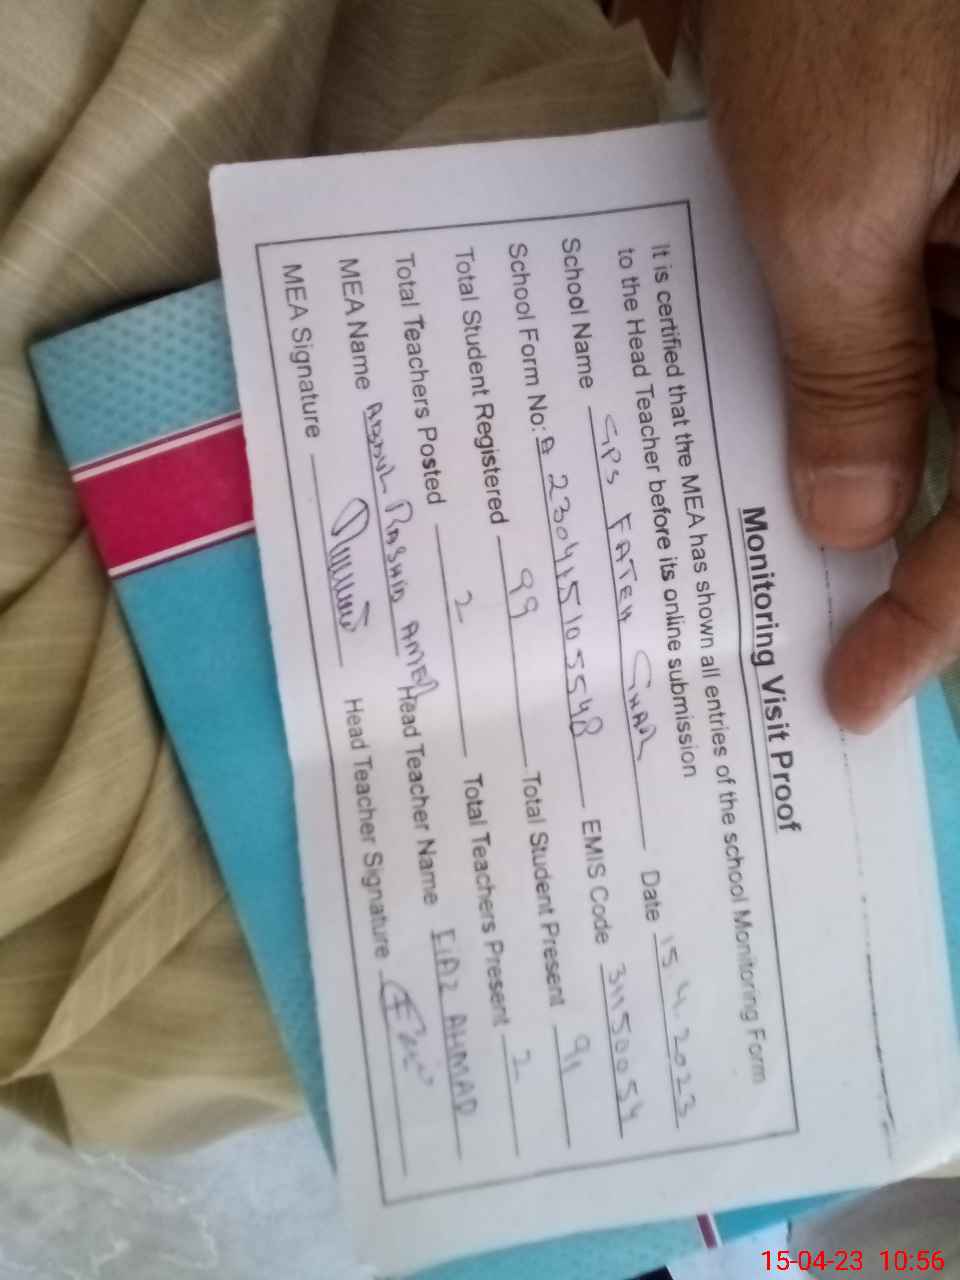 Monitoring Visit Proof
It is certified that the MEA has shown all entries of the school Monitoring Form
to the Head Teacher before its online submission
School Name GPS FATEH GHAR Date 15.4.2023
School Form No: 230415105548 EMIS Code 31150054
Total Student Registered 99 Total Student Present 91
Total Teachers Posted 2 Total Teachers Present 2
MEA Name ABDUL RASHID AMER Head Teacher Name EJAZ AHMAD
MEA Signature Head Teacher Signature
15-04-23 10:56